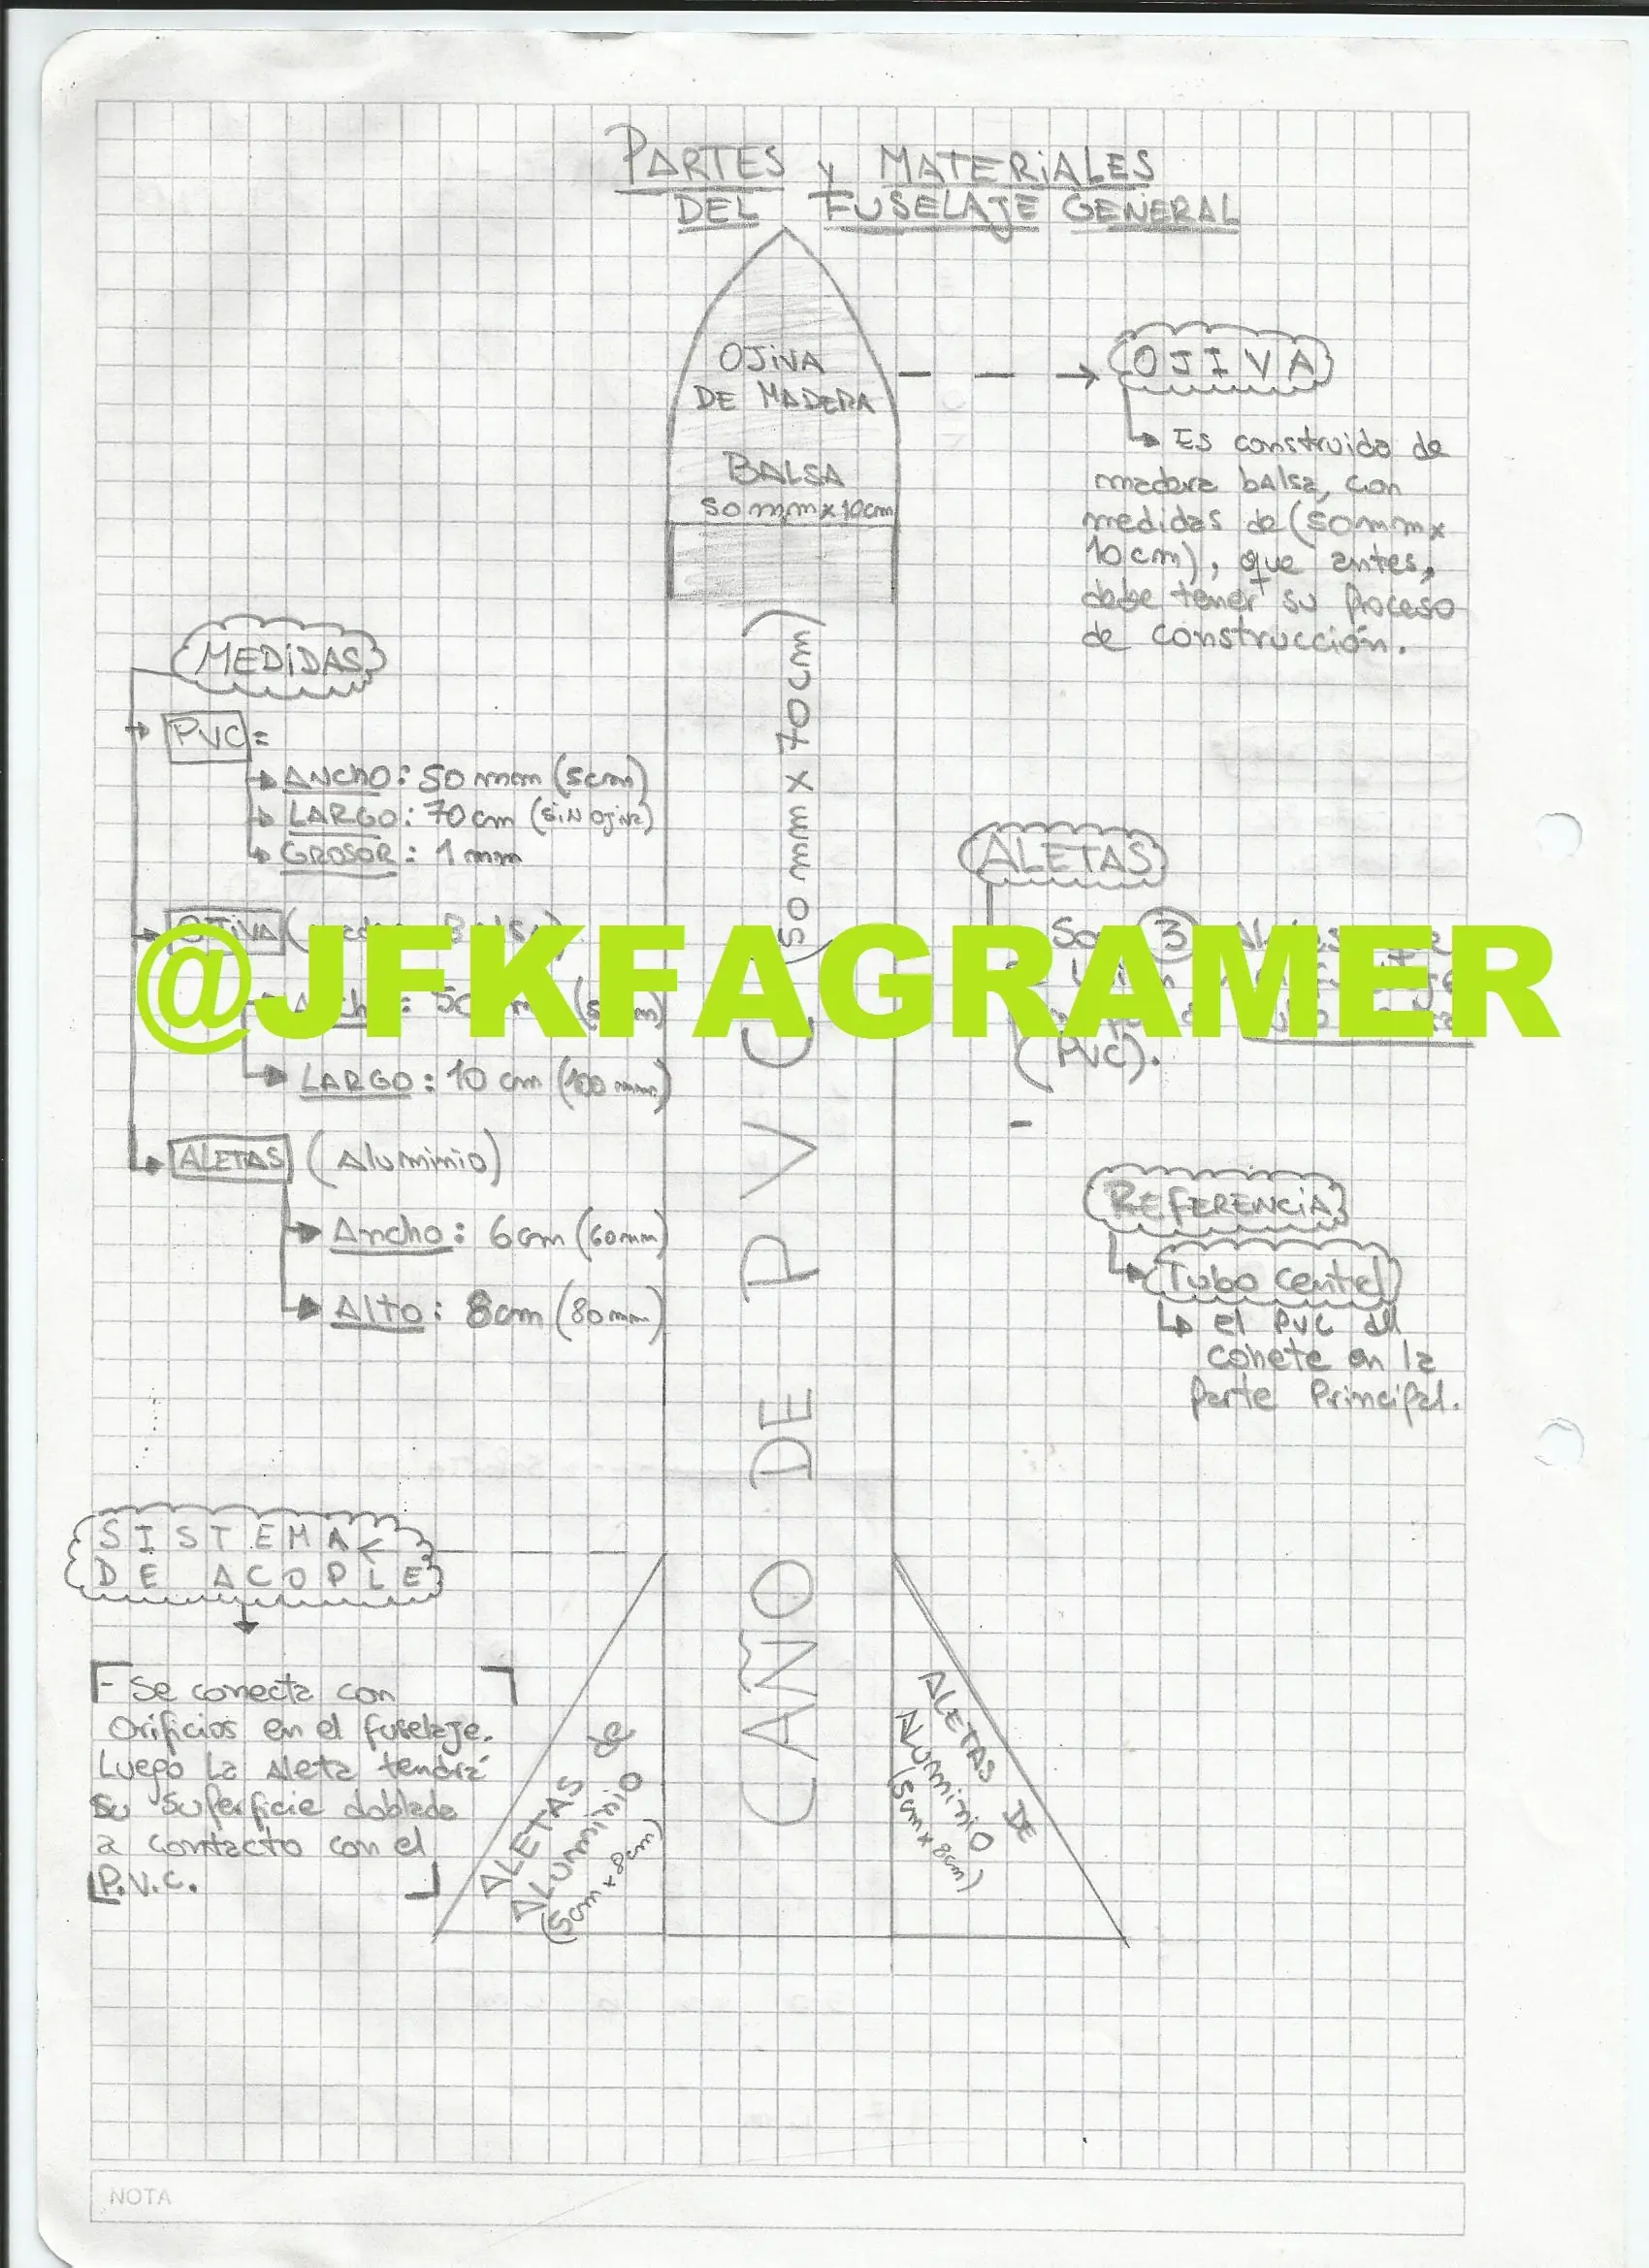 PARTES y MATERIALES
DEL FUSELAJE GENERAL
OJIVA
DE MADERA
BALSA
50mmx10cm
OJIVA
Es construida de
madera balsa, con
medidas de (50mmx
10cm), que antes,
debe tener su proceso
de construcción.
MEDIDAS
PVC=
ANCHO: 50 mm (5cm)
LARGO: 70cm (SiN Ojiva)
GROSOR: 1 mm
OJIVA
50 mm
LARGO: 10 cm (100 mm)
ALETAS (Aluminio)
Ancho: 6cm (60mm)
Alto: 8cm (80mm)
CAÑO DE PVC (50mm x 70cm)
ALETAS
Son 3 Aletas
(PVC).
-
@JFKFAGRAMER
REFERENCIA
Tubo Central
El PVC del
cohete en la
parte Principal.
SISTEMA
DE ACOPLE
- Se conecta con
Orificios en el fuselaje.
Luego La Aleta tendrá
su superficie doblada
a contacto con el
P.V.C.
ALETAS de
Aluminio
(5cm x 8cm)
ALETAS DE
Aluminio
(5cm x 8cm)
NOTA